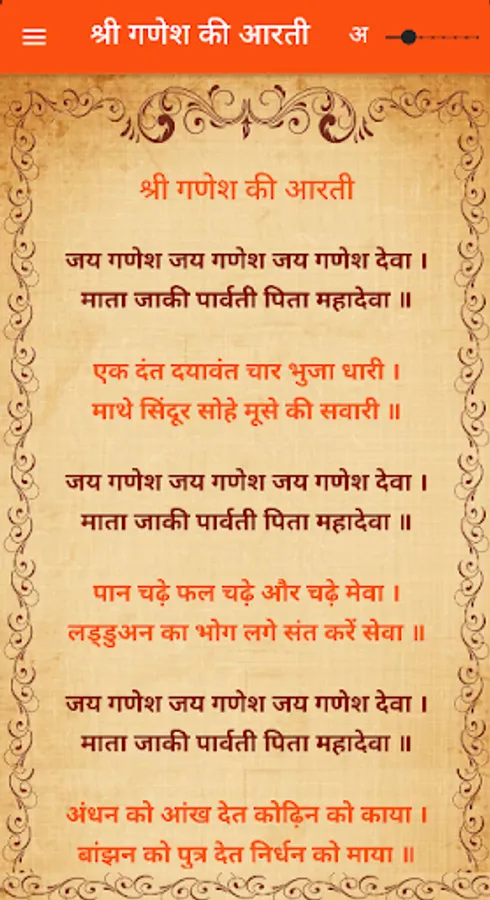 श्री गणेश की आरती अ
श्री गणेश की आरती
जय गणेश जय गणेश जय गणेश देवा ।
माता जाकी पार्वती पिता महादेवा ॥
एक दंत दयावंत चार भुजा धारी ।
माथे सिंदूर सोहे मूसे की सवारी ॥
जय गणेश जय गणेश जय गणेश देवा ।
माता जाकी पार्वती पिता महादेवा ॥
पान चढ़े फल चढ़े और चढ़े मेवा ।
लड्डुअन का भोग लगे संत करें सेवा ॥
जय गणेश जय गणेश जय गणेश देवा ।
माता जाकी पार्वती पिता महादेवा ॥
अंधन को आंख देत कोढ़िन को काया ।
बांझन को पुत्र देत निर्धन को माया ॥